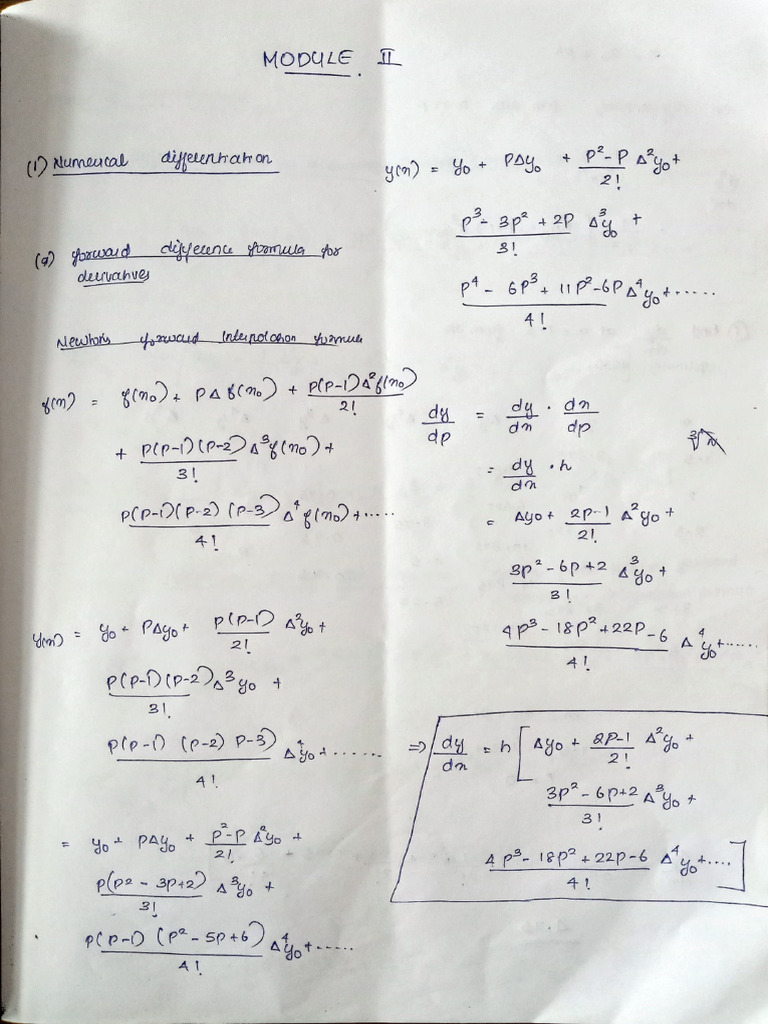 MODULE II
(1) Numerical differentiation
(a) forward difference formula for
derivatives
Newton's forward Interpolation formula
f(x) = f(x₀) + PΔf(x₀) + P(P-1)Δ²f(x₀)/2!
+ P(P-1)(P-2)/3! Δ³f(x₀) +
P(P-1)(P-2)(P-3)/4! Δ⁴f(x₀) + .....
y(x) = y₀ + PΔy₀ + P(P-1)/2! Δ²y₀ +
P(P-1)(P-2)/3! Δ³y₀ +
P(P-1) (P-2) P-3)/4! Δ⁴y₀ + ......
= y₀ + PΔy₀ + P²-P/2! Δ²y₀ +
P(P2 - 3P+2)/3! Δ³y₀ +
P(P-1) (P² - 5P+6)/4! Δ⁴y₀ + .....
y(x) = y₀ + PΔy₀ + P²-P/2! Δ²y₀ +
P³ - 3P² + 2P/3! Δ³y₀ +
P⁴ - 6P³ + 11P² - 6P/4! Δ⁴y₀ + .....
dy/dp = dy/dx · dx/dp
= dy/dx · h
= Δy₀ + 2P-1/2! Δ²y₀ +
3P² - 6P+2/3! Δ³y₀ +
4P³ - 18P² + 22P - 6/4! Δ⁴y₀ + .....
⇒ dy/dx = h [ Δy₀ + 2P-1/2! Δ²y₀ +
3P² - 6P+2/3! Δ³y₀ +
4P³ - 18P² + 22P - 6/4! Δ⁴y₀ + .... ]